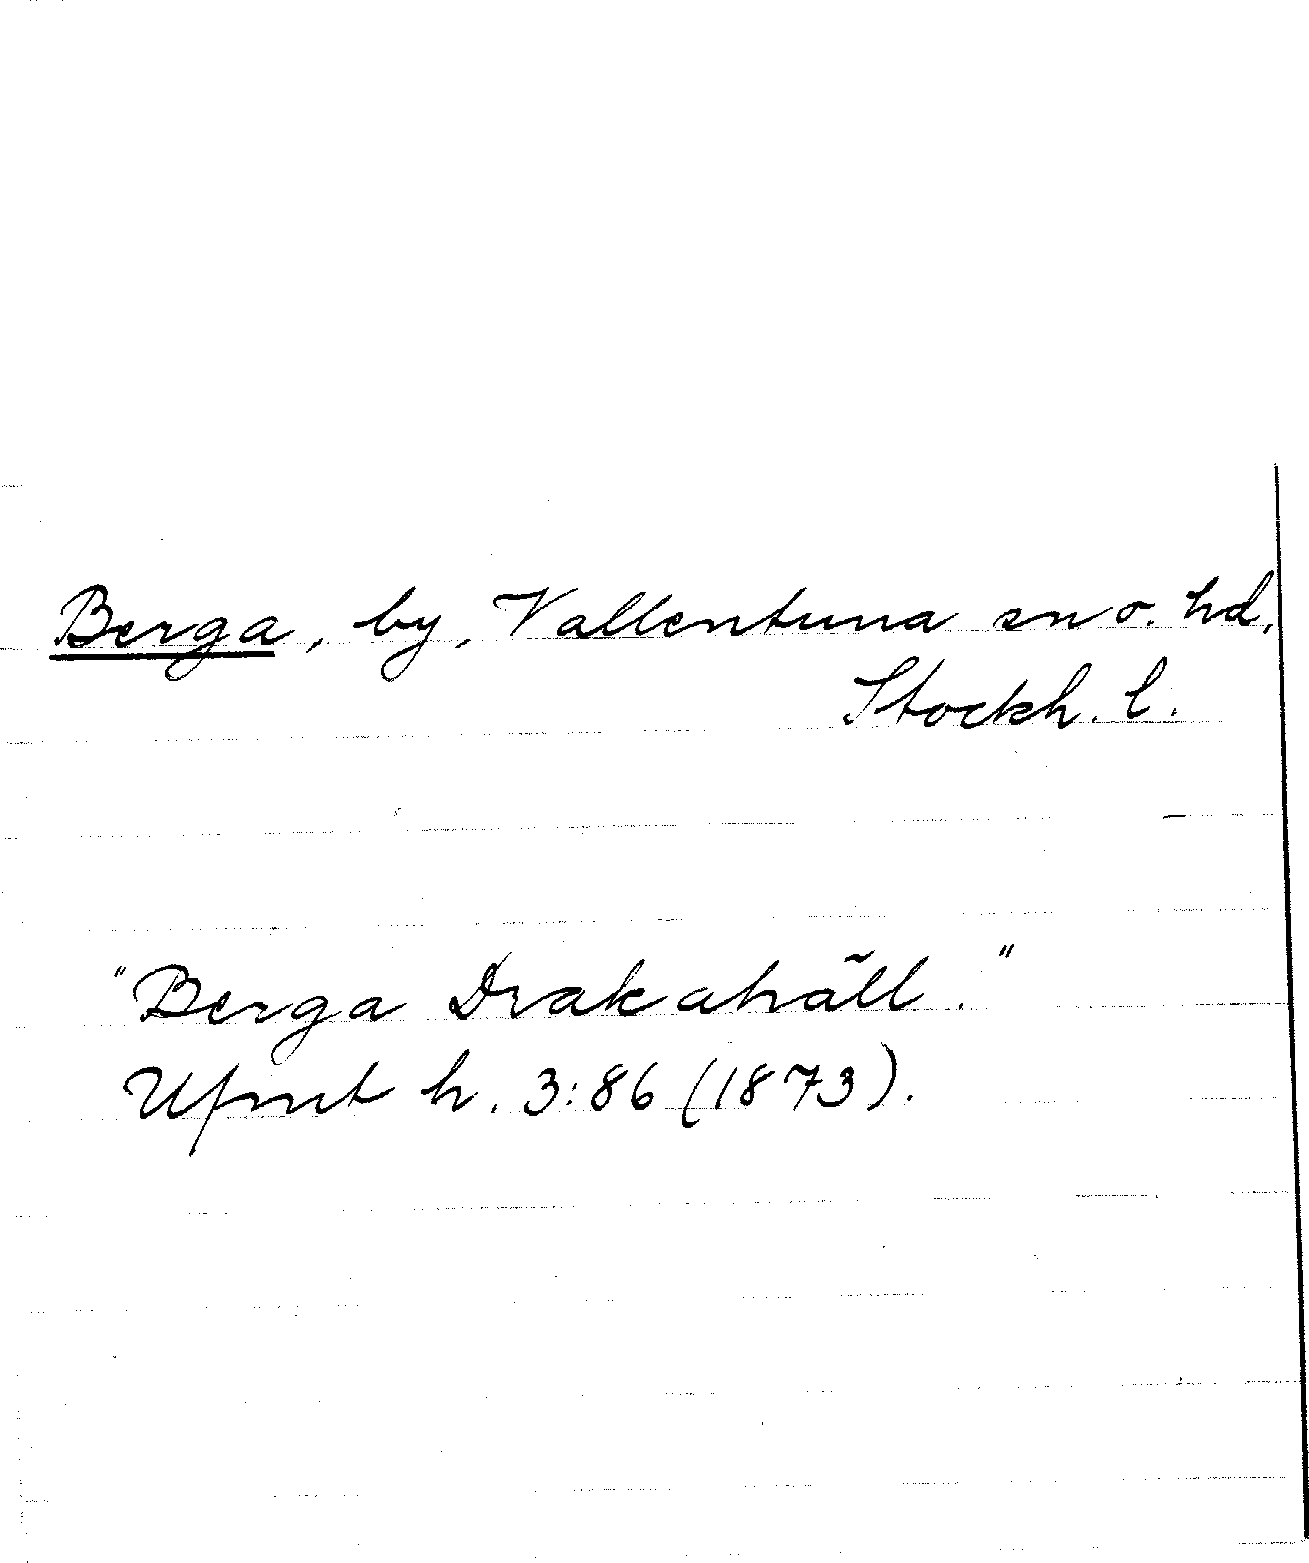 Berga, by, Vallentuna sn o. hd,
Stockh. l.
"Berga Drakahäll."
Ufmt h. 3:86 (1873).